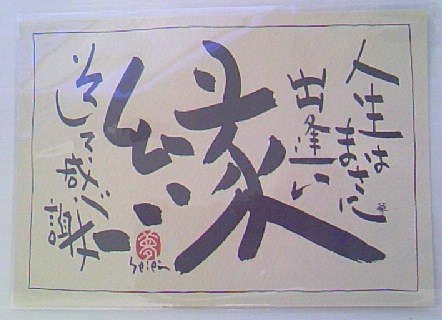 人生は
まさに
出逢い
縁
そして感謝
Seien